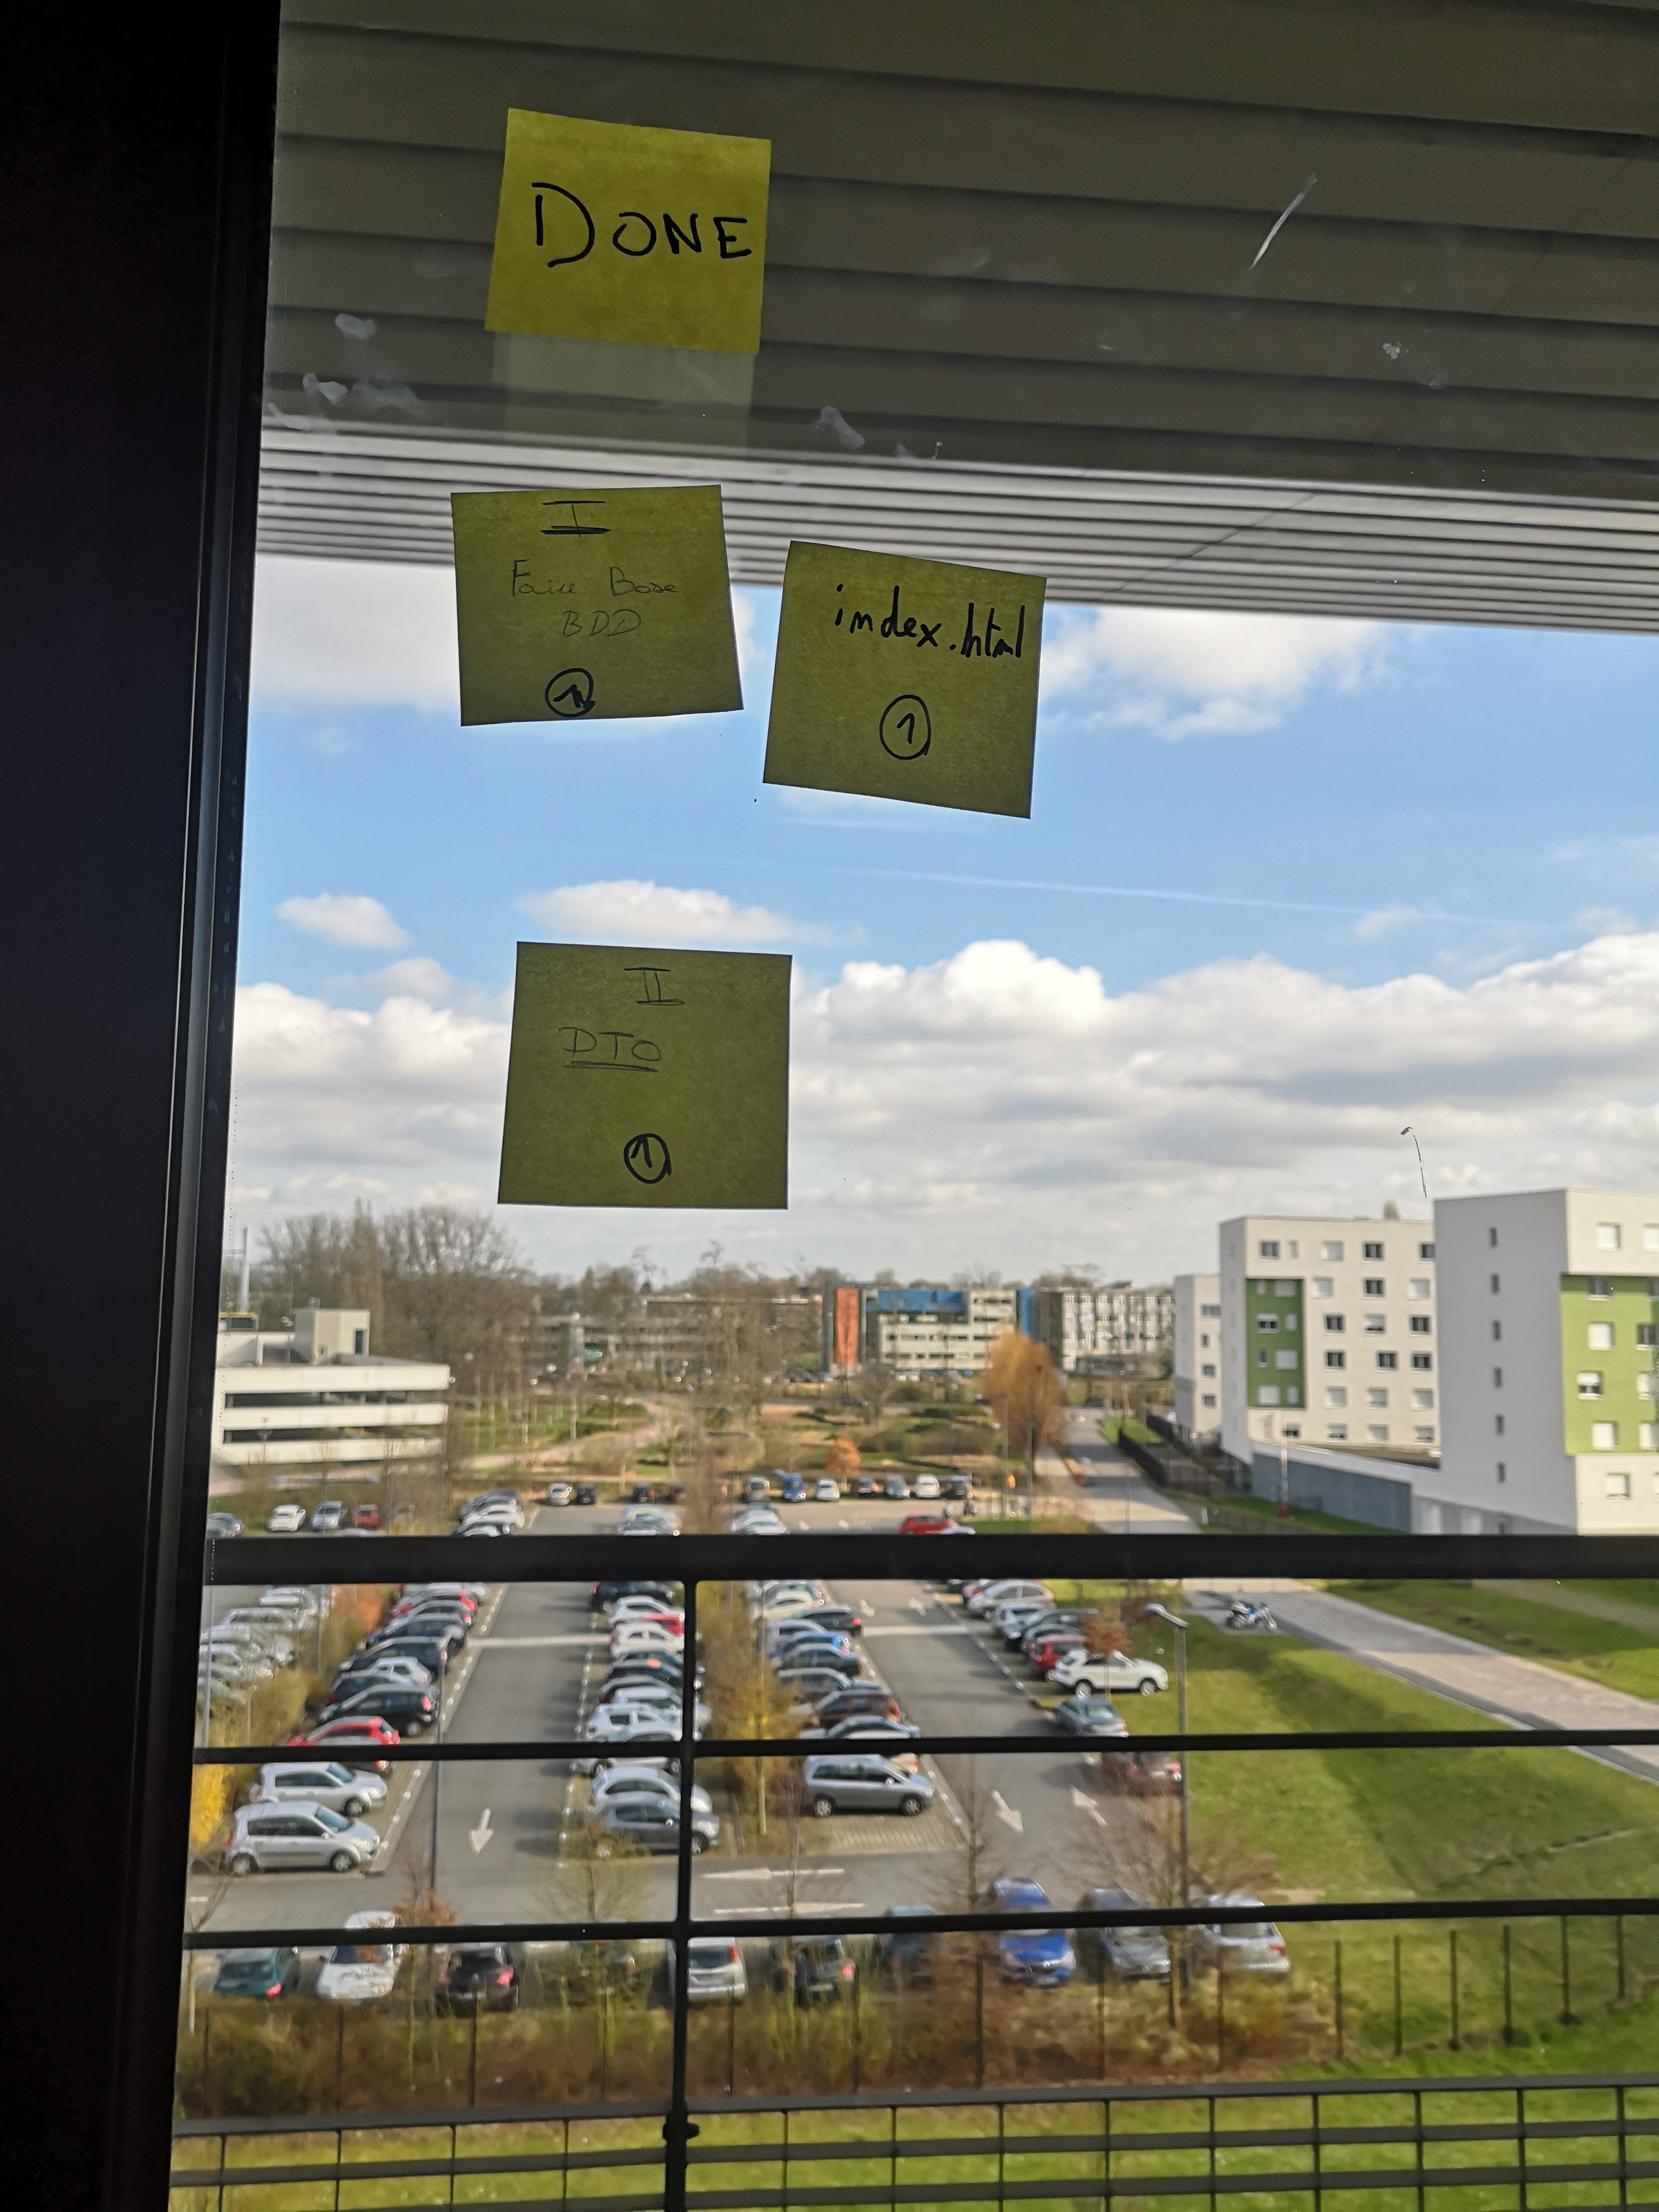 DONE
I
Faire Base
BDD
1
index.html
1
II
DTO
1